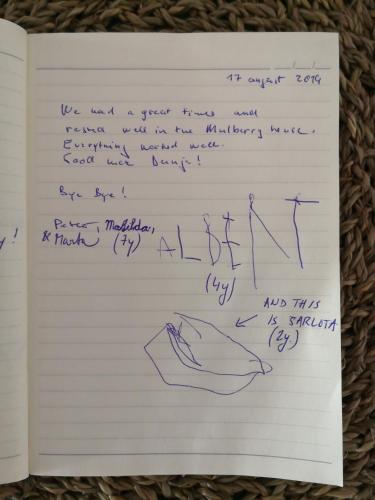 17 august 2019
We had a great times and
rested well in the Mulberry house.
Everything worked well.
Good luck Dunja!
Bye Bye!
y!
Petra, Matilda,
& Marta, (7y)
ALBENT
(4y)
AND THIS
IS SARLOTA
(2y)